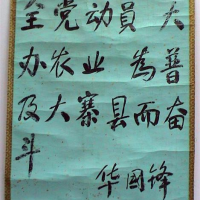 全党动員 大
办农业 為普
及大寨县而奋
斗
华國锋